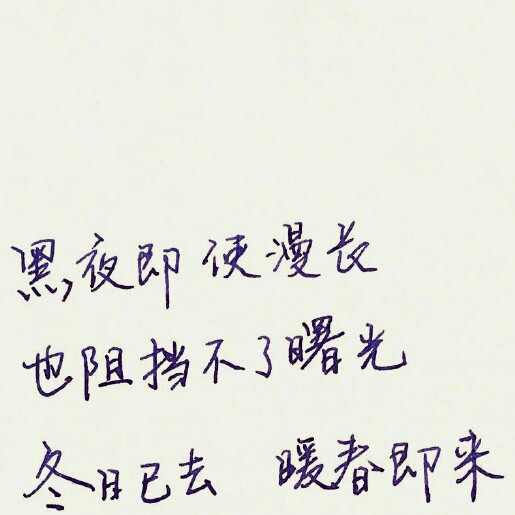 黑夜即使漫长
也阻挡不了曙光
冬日已去 暖春即来